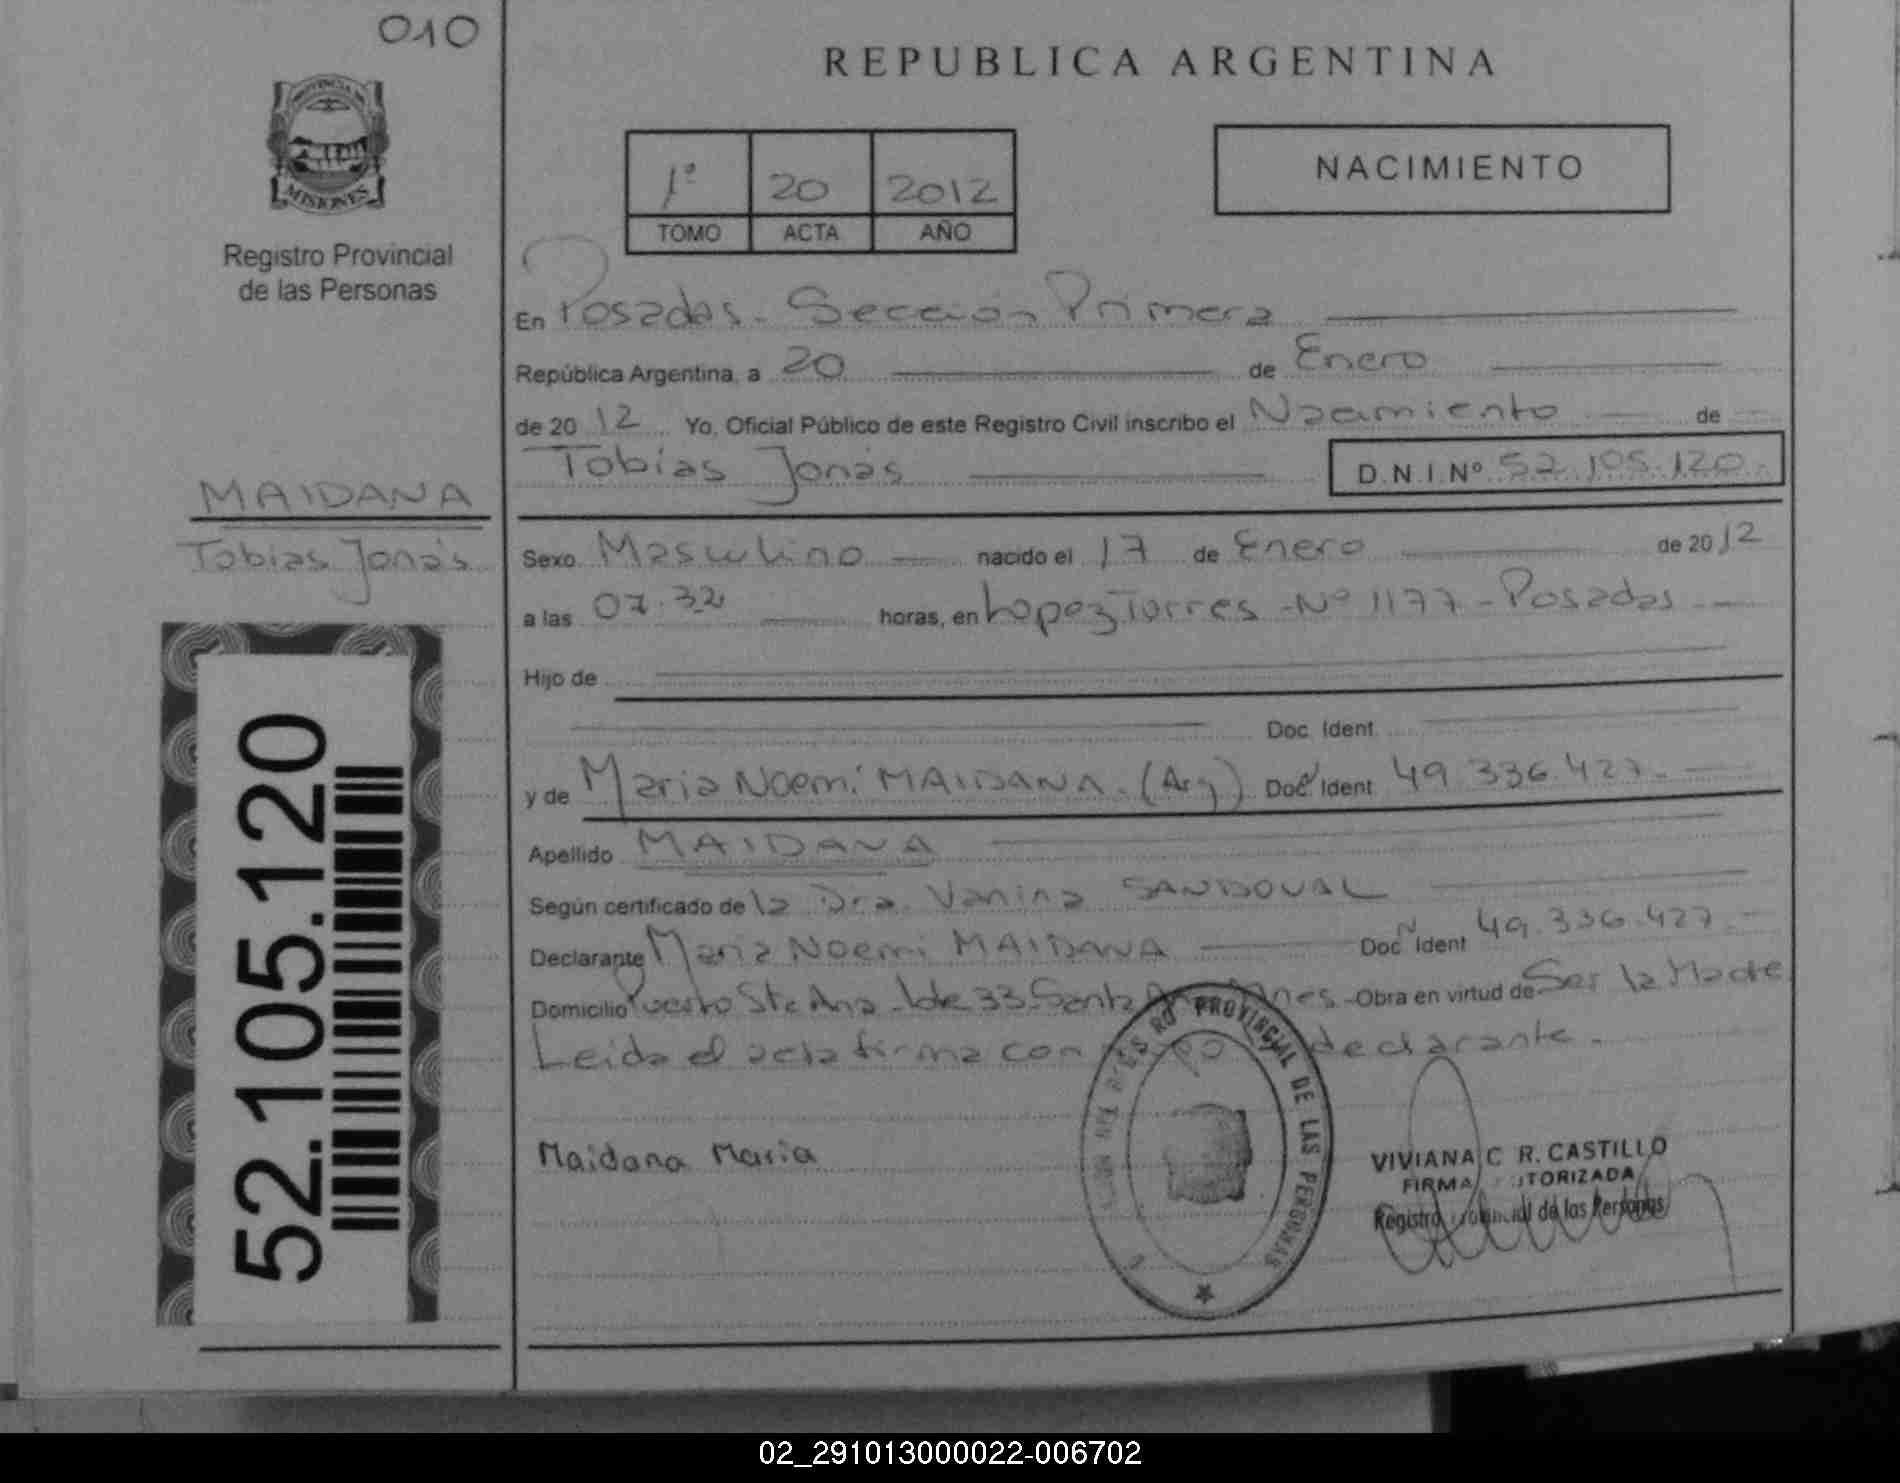 010
PROVINCIA DE
MISIONES
Registro Provincial
de las Personas
MAIDANA
Tobias Jonás
52.105.120
REPUBLICA ARGENTINA
1º 20 2012
TOMO ACTA AÑO
NACIMIENTO
En Posadas - Sección Primera
República Argentina, a 20 de Enero
de 2012 Yo, Oficial Público de este Registro Civil inscribo el Nacimiento de
Tobías Jonás D.N.I.Nº 52.105.120.-
Sexo Masculino nacido el 17 de Enero de 2012
a las 07.32 horas, en Lopez Torres - Nº 1177 - Posadas
Hijo de
Doc. Ident.
y de Maria Noemí MAIDANA. (Arg) Doc. Ident 49.336.427.
Apellido MAIDANA
Según certificado de la Dra. Vanina SANDOVAL
Declarante Maria Noemi MAIDANA Doc. Ident 49.336.427.
Domicilio Puerto Sta Ana - lote 33 Santa -Obra en virtud de Ser la Madre
Leida el acta firma con declarante.
Maidana Maria
PROVINCIAL DE LAS PERSONAS
VIVIANA C R. CASTILLO
FIRMA
Registro de las Personas
02_291013000022-006702